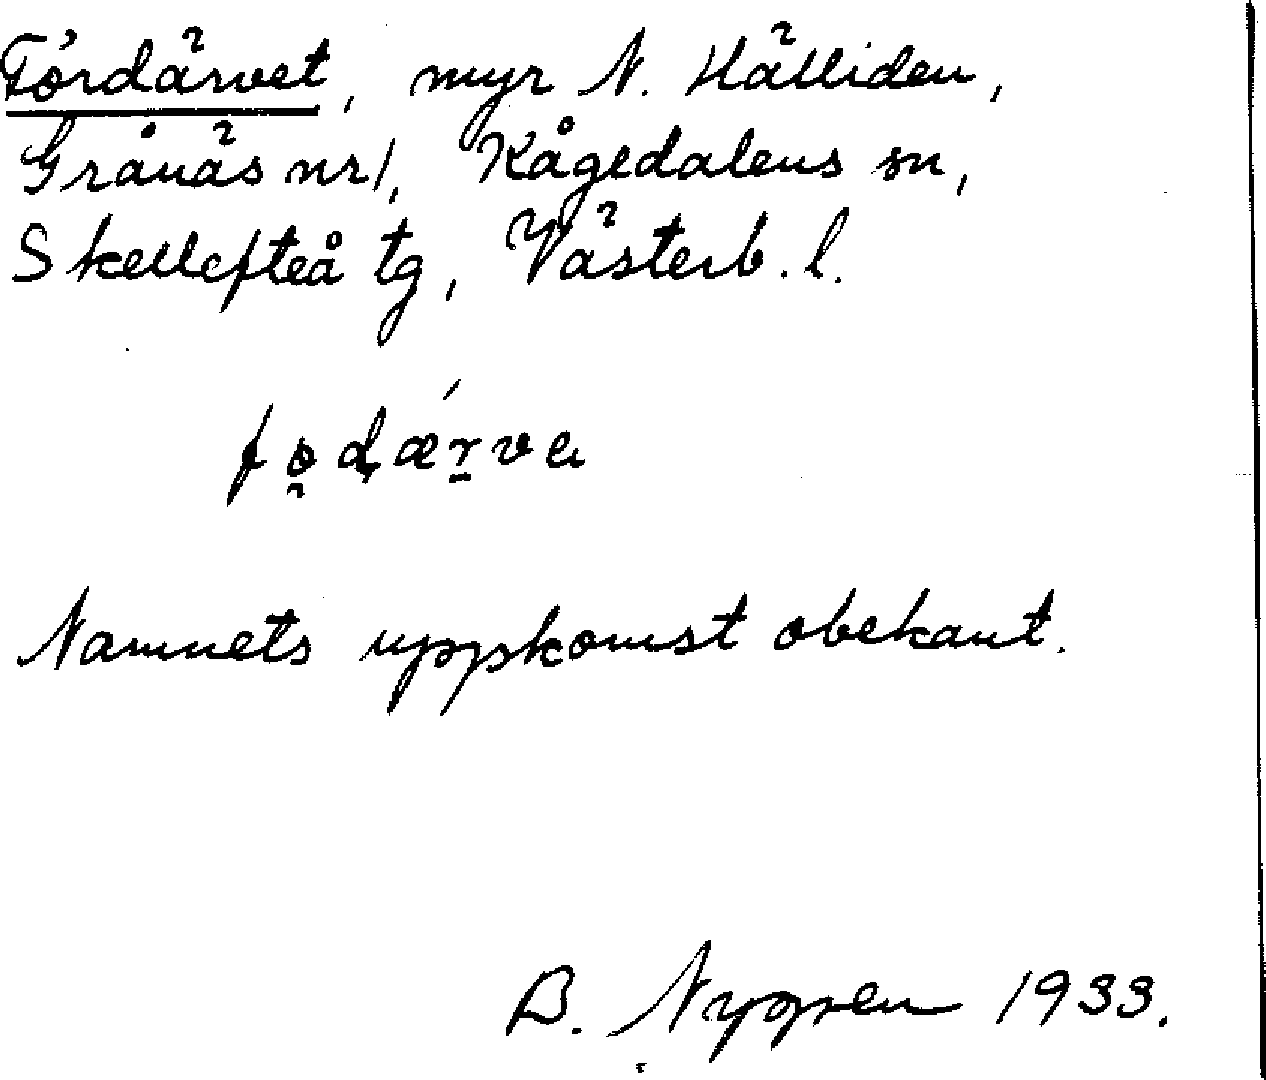 Fördärvet, myr N. Hälliden,
Gränäs nr 1, Kågedalens sn,
Skellefteå tg, Västerb. l.
fo̱ḍæ´r̠va
Namnets uppkomst obekant.
B. Nygren 1933.